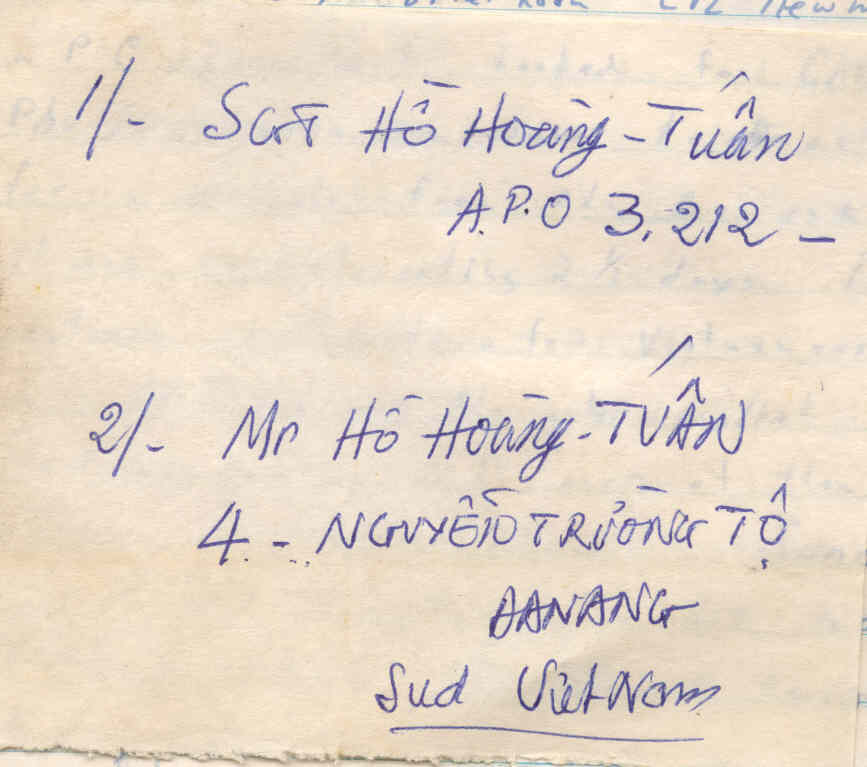 1/- SGT Hồ Hoàng-Tuấn
A.P.O 3.212 -
2/- Mr Hồ Hoàng-TUẤN
4 - NGUYỄN TRƯỜNG TỘ
DANANG
Sud VietNam